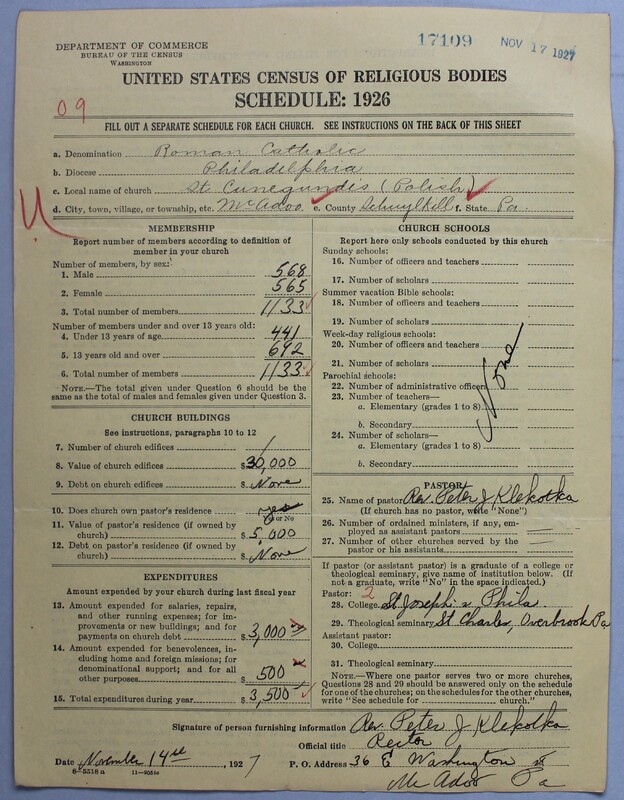 17109 NOV 17 1927
DEPARTMENT OF COMMERCE
BUREAU OF THE CENSUS
WASHINGTON
UNITED STATES CENSUS OF RELIGIOUS BODIES
SCHEDULE: 1926
09
FILL OUT A SEPARATE SCHEDULE FOR EACH CHURCH. SEE INSTRUCTIONS ON THE BACK OF THIS SHEET
a. Denomination Roman Catholic
b. Diocese Philadelphia
c. Local name of church St. Cunegundis (Polish)
d. City, town, village, or township, etc. McAdoo e. County Schuylkill f. State Pa.
MEMBERSHIP
Report number of members according to definition of
member in your church
Number of members, by sex:
1. Male 568
2. Female 565
3. Total number of members 1133
Number of members under and over 13 years old:
4. Under 13 years of age 441
5. 13 years old and over 692
6. Total number of members 1133
NOTE.—The total given under Question 6 should be the
same as the total of males and females given under Question 3.
CHURCH BUILDINGS
See instructions, paragraphs 10 to 12
7. Number of church edifices 1
8. Value of church edifices $30,000
9. Debt on church edifices $ None
10. Does church own pastor's residence yes
Yes or No
11. Value of pastor's residence (if owned by
church) $5,000
12. Debt on pastor's residence (if owned by
church) $ None
EXPENDITURES
Amount expended by church during last fiscal year
13. Amount expended for salaries, repairs,
and other running expenses; for im-
provements or new buildings; and for
payments on church debt $3,000
14. Amount expended for benevolences, in-
cluding home and foreign missions; for
denominational support; and for all
other purposes $ 500
15. Total expenditures during year $3,500
CHURCH SCHOOLS
Report here only schools conducted by this church
Sunday schools:
16. Number of officers and teachers
17. Number of scholars
Summer vacation Bible schools:
18. Number of officers and teachers
19. Number of scholars
Week-day religious schools:
20. Number of officers and teachers
21. Number of scholars
Parochial schools:
22. Number of administrative officers
23. Number of teachers—
a. Elementary (grades 1 to 8)
b. Secondary
24. Number of scholars—
a. Elementary (grades 1 to 8)
b. Secondary
None
PASTOR
25. Name of pastor Rev. Peter J Klekotka
(If church has no pastor, write "None")
26. Number of ordained ministers, if any, em-
ployed as assistant pastors
27. Number of other churches served by the
pastor or his assistants
If pastor (or assistant pastor) is a graduate of a college or
theological seminary, give name of institution below. (If
not a graduate, write "No" in the space indicated.)
Pastor: 2
28. College St Joseph's Phila
29. Theological seminary St Charles, Overbrook Pa
Assistant pastor:
30. College
31. Theological seminary
NOTE.—Where one pastor serves two or more churches,
Questions 28 and 29 should be answered only on the schedule
for one of the churches; on the schedules for the other churches,
write "See schedule for church."
Signature of person furnishing information Rev. Peter J Klekotka
Official title Rector
Date November 14th, 1927 P. O. Address 36 E Washington St
8-5518 a
McAdoo Pa